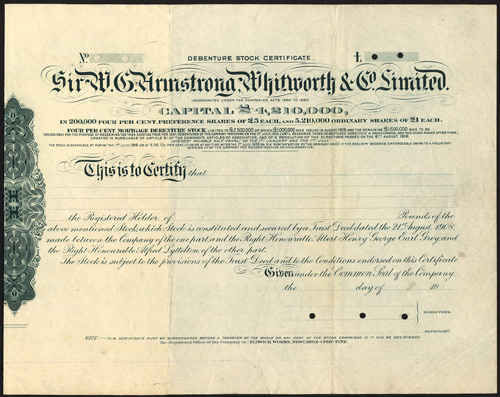 No
DEBENTURE STOCK CERTIFICATE
£
Sir W.G. Armstrong, Whitworth & Co. Limited.
INCORPORATED UNDER THE COMPANIES ACTS 1862 TO 1890.
CAPITAL £4,210,000,
IN 200,000 FOUR PER CENT. PREFERENCE SHARES OF £5 EACH, AND 3,210,000 ORDINARY SHARES OF £1 EACH.
FOUR PER CENT MORTGAGE DEBENTURE STOCK, LIMITED TO £2,500,000 OF WHICH £1,000,000 WAS ISSUED IN AUGUST 1908, AND THE REMAINING £1,500,000 WAS TO BE
INTEREST PAYABLE HALF-YEARLY ON THE 1ST JANUARY AND THE 1ST JULY.
This is to Certify that
the Registered Holder of Pounds of the
above mentioned Stock, which Stock is constituted and secured by a Trust Deed dated the 21st August, 1908,
made between the Company of the one part, and the Right Honourable Albert Henry George Earl Grey, and
the Right Honourable Alfred Lyttelton, of the other part.
The Stock is subject to the provisions of the Trust Deed and to the Conditions endorsed on this Certificate
Given under the Common Seal of the Company,
the day of 19
DIRECTORS.
SECRETARY.
NOTE:—THIS CERTIFICATE MUST BE SURRENDERED BEFORE A TRANSFER OF THE WHOLE OR ANY PART OF THE STOCK COMPRISED IN IT CAN BE REGISTERED.
The Registered Office of the Company is:- ELSWICK WORKS, NEWCASTLE-UPON-TYNE.